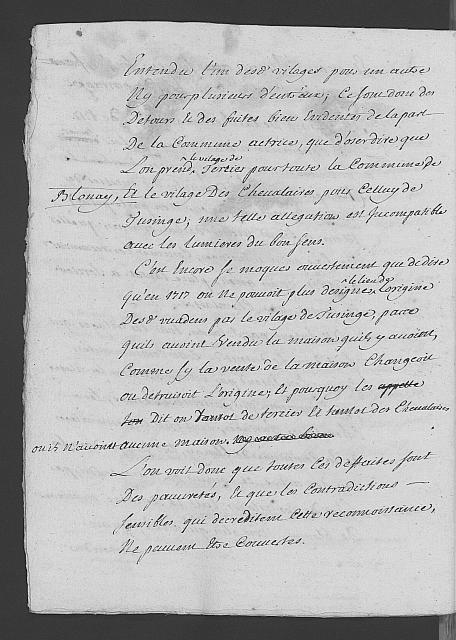 Entendu L'un desd. vilages pour un autre
Ny pour plusieurs d'entr'eux; Ce sont donc des
Detours & des fuites bien Evidentes de la part
De la Commune actrice, que d'oser dire que
L'on prend le vilage de Tercier pour toute la Commune de
Blonay, Et le vilage Des Chevalaires pour Celluy de
Tusinge; une telle allegation est Incompatible
avec les lumieres du bon sens.
C'est Encore se moquer ouvertement que de dire
Qu'en 1717 on Ne pouvoit plus designer le lieu de L'origine
Desd. par le vilage de Tusinge, parce
quils avoient Vendu la maison quils y avoient,
Comme sy la vente de la maison Changeoit
ou detruisoit L'origine; Et pourquoy les appelle
Dit on tantot de tercier Et tantot des Chevalaires
ou ils n'avoient aucune maison.
L'on voit donc que toutes Ces deffaites sont
Des pauvretés, & que les Contradictions
sensibles qui decreditent Cette reconnoissance,
Ne peuvent Etre Couvertes.